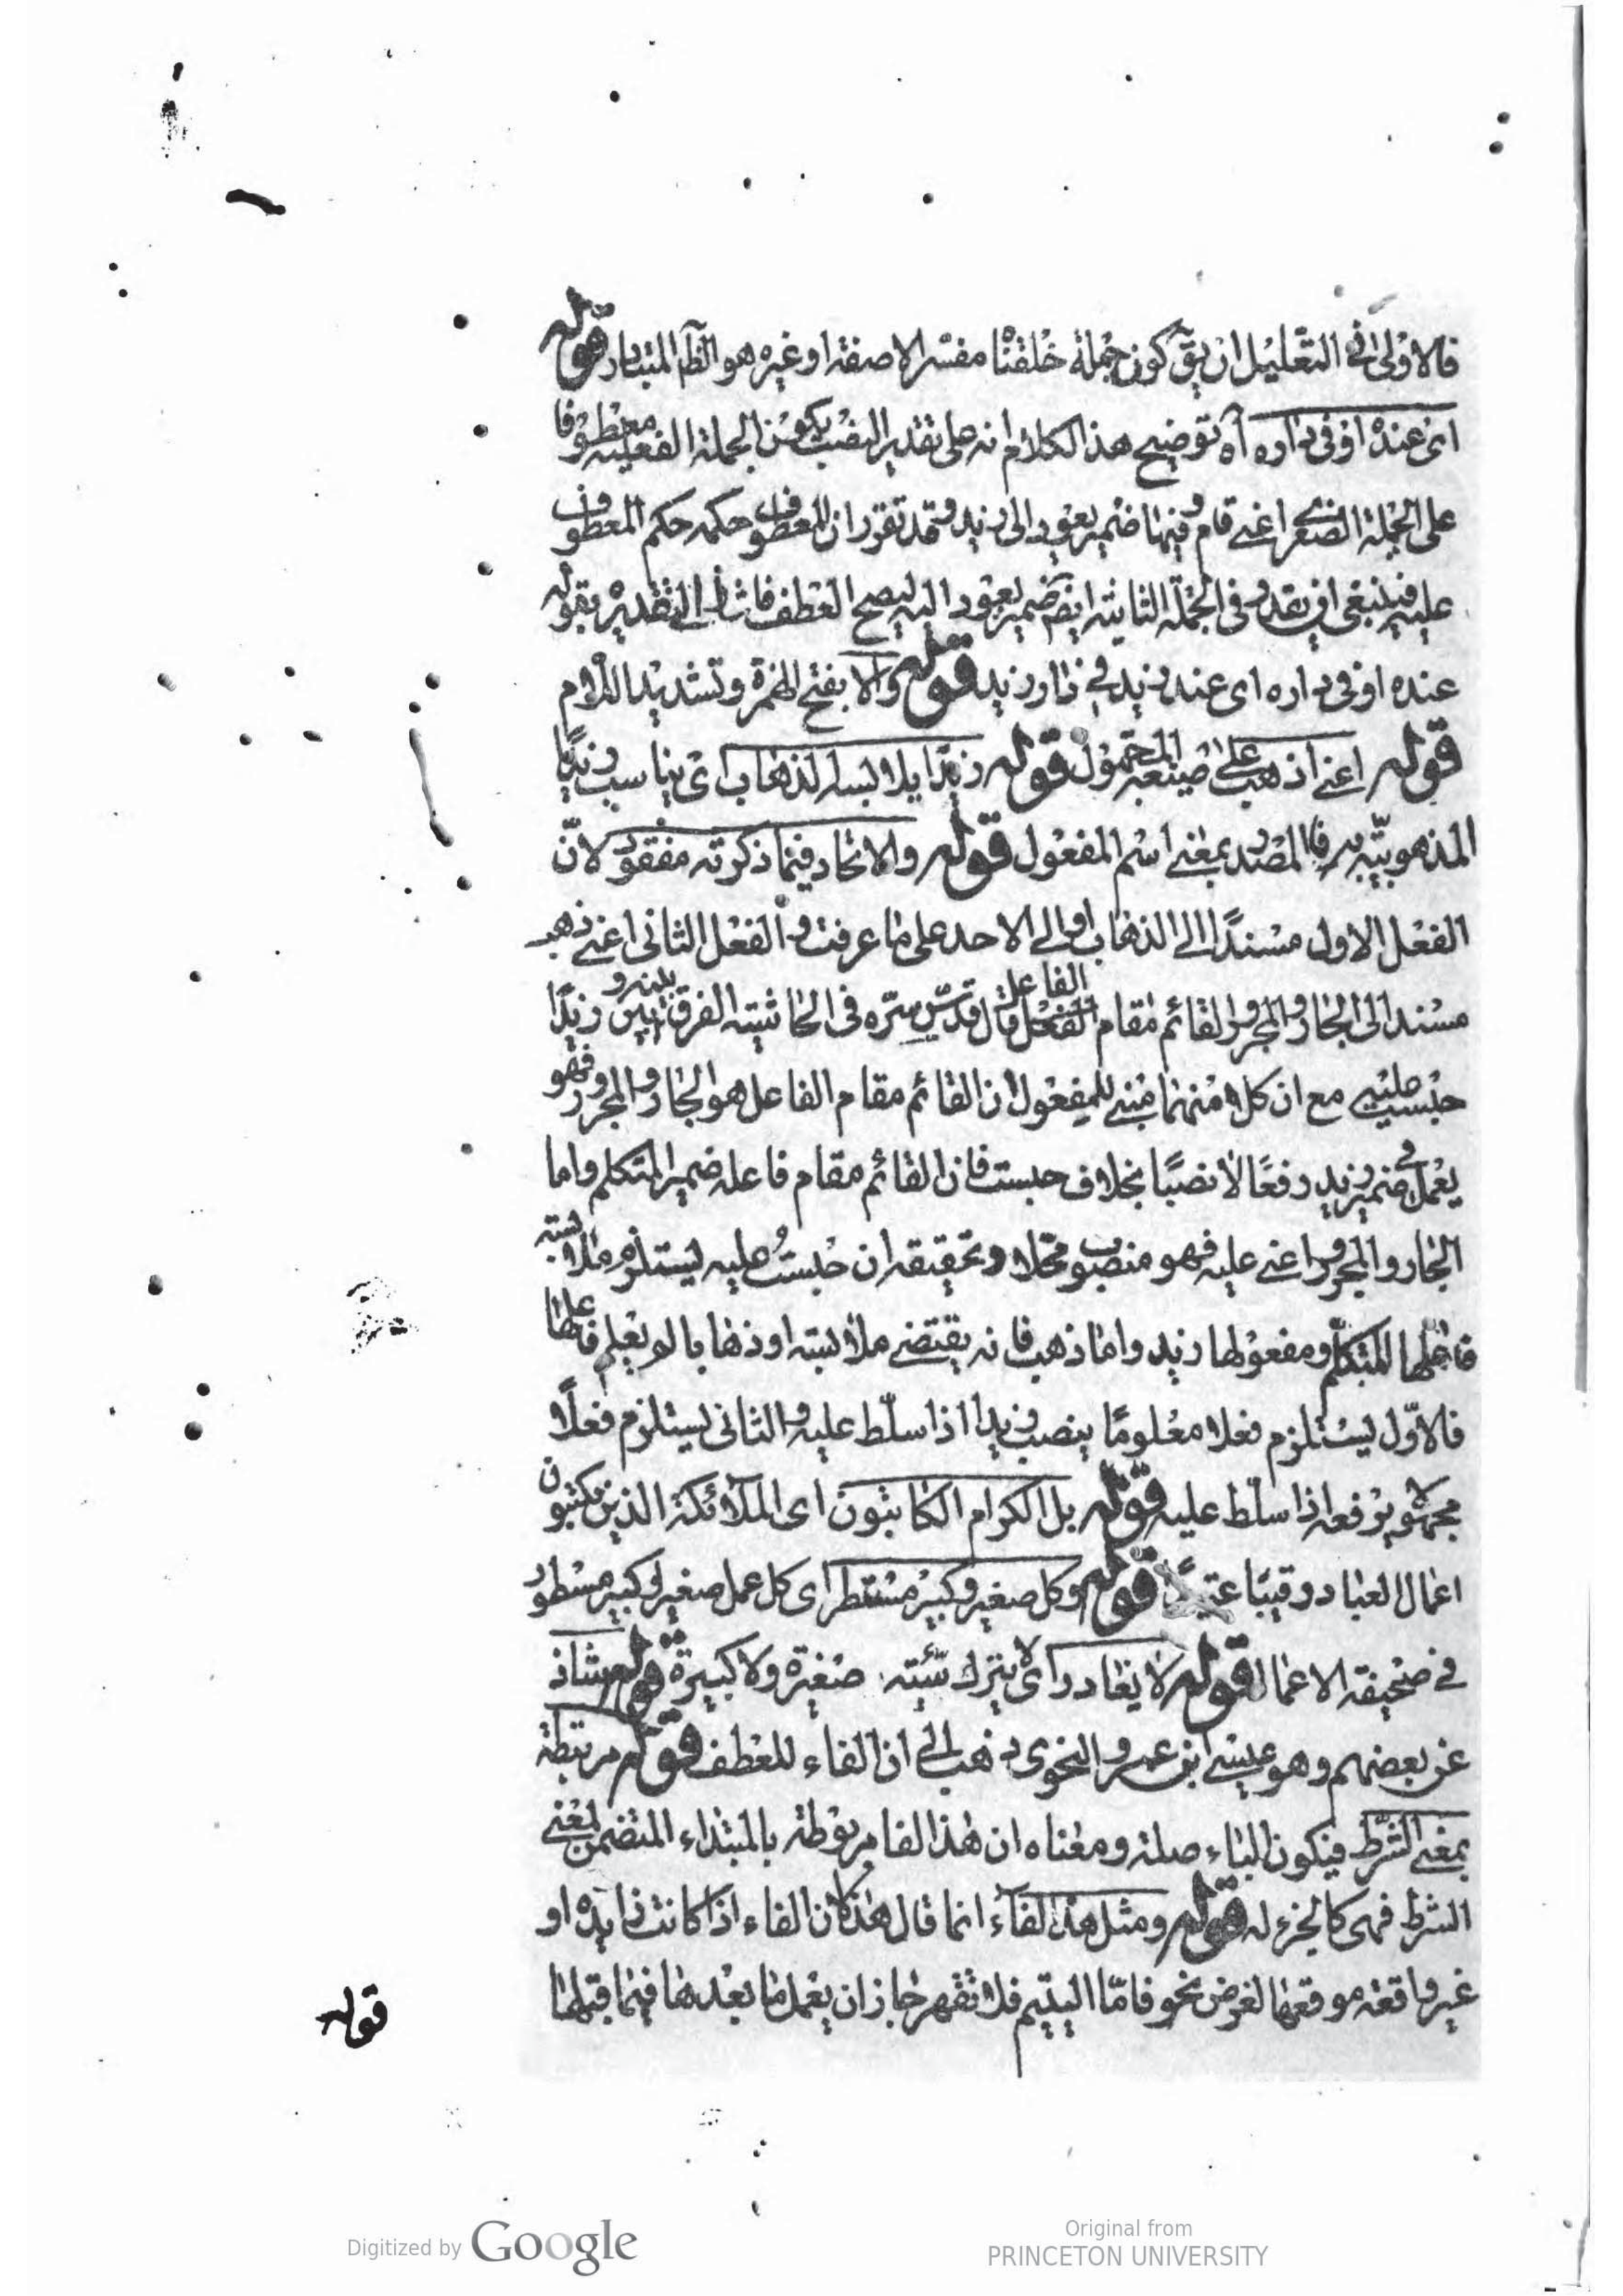 فالاولى فى التعليل ان يق كون جملة خلقنا مفسرا لا صفة او غيره هو الظ المتبادر قوله
اى عنده او فى داره آه توضيح هذا الكلام انه على تقدير النصب يكون الجملة الفعلية معطوفا
على الجملة الصغرى اعنى قام وفيها ضمير يعود الى زيد وقد تقرر ان المعطوف حكمه حكم المعطوف
عليه فينبغى ان يقدر فى الجملة الثانية ايض ضمير يعود اليه ليصح العطف فاشار الى التقدير بقوله
عنده او فى داره اى عند زيد فى دار زيد قوله والا بفتح الهمزة وتشديد اللام
قوله اعنى اذهب على صيغة المجهول قوله زيدا يلابسه الذهاب اى يناسب زيدا
المذهوبية به فالمصدر بمعنى اسم المفعول قوله والاتحاد فيما ذكرته مفقود لان
الفعل الاول مسندا الى الذهاب او الى الاحد على ما عرفت والفعل الثانى اعنى ذهب
مسند الى الجار والمجرور القائم مقام الفاعل قال قدس سره فى الحاشية الفرق بينه وبين زيدا
حبست عليه مع ان كلا منهما مبنى للمفعول ان القائم مقام الفاعل هو الجار والمجرور فهو
يعمل فى ضمير زيد رفعا لا نصبا بخلاف حبست فان القائم مقام فاعله ضمير المتكلم واما
الجار والمجرور اعنى عليه فهو منصوب محلا وتحقيقه ان حبستُ عليه يستلزم ملابسة
فاعلها المتكلم ومفعولها زيد واما ذهب فانه يقتضى ملابسة او ذهابا لو يعلم فاعلها
فالاول يستلزم فعلا معلوما ينصب زيدا اذا سلط عليه والثانى يستلزم فعلا
مجهولا يرفعه اذا سلط عليه قوله بل الكرام الكاتبون اى الملائكة الذين يكتبون
اعمال العباد رقيبا عتيدا قوله وكل صغير وكبير مستطر اى كل عمل صغير او كبير مسطور
فى صحيفة الاعمال قوله لا يغادر اى لا يترك سيئة صغيرة ولا كبيرة قوله شاذ
عن بعضهم وهو عيسى ابن عمرو النحوى ذهب الى ان الفاء للعطف قوله مرتبطة
بمعنى الشرط فيكون الباء صلة ومعناه ان هذا الفا مربوطة بالمبتداء المتضمن لمعنى
الشرط فهى كالجزء له قوله ومثل هذا الفآء انما قال هذا لان الفاء اذا كانت زايدة او
غير واقعة موقعها لغرض نحو فامّا اليتيم فلا تقهر جاز ان يعمل ما بعدها فيما قبلها
قوله
Digitized by Google
Original from
PRINCETON UNIVERSITY